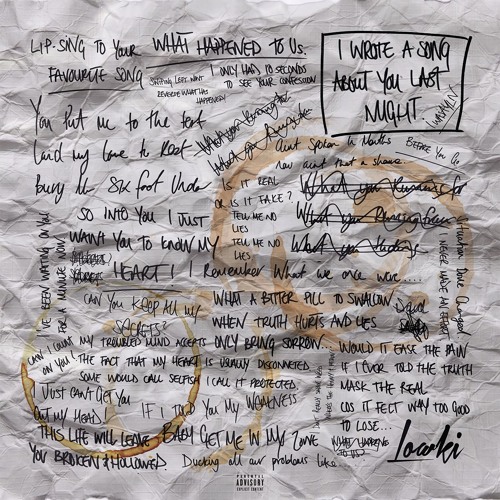 LIP-SING TO YOUR
FAVOURITE SONG
WHAT HAPPENED TO US.
SWITCHING LEFT WONT
REVERSE WHAT HAS
HAPPENED
I ONLY HAD 10 SECONDS
TO SEE YOUR CONFESSION
I WROTE A SONG
ABOUT YOU LAST
NIGHT.
You put me to the test
Laid my love to Rest
Bury Me Six foot Under
Aint Spoken In Months
now aint that a shame
BEFORE YOU GO
IS IT REAL
OR IS IT FAKE?
TELL ME NO
LIES
TELL ME NO
LIES
What you Running for
What you Running from
SO INTO YOU I JUST
WANT YOU TO KNOW MY
HEART! I Remember What we once were....
I'VE BEEN WAITING ON YOU
FOR A MINUTE NOW
NEVER MADE AN EFFORT
CAN YOU KEEP ALL MY
SECRETS?
WHAT A BITTER PILL TO SWALLOW
WHEN TRUTH HURTS AND LIES
ONLY BRING SORROW
CAN I COUNT
ON YOU!
MY TROUBLED MIND ACCEPTS
THE FACT THAT MY HEART IS USUALLY DISCONNECTED
SOME WOULD CALL SELFISH I CALL IT PROTECTED
WOULD IT EASE THE PAIN
IF I EVER TOLD THE TRUTH
MASK THE REAL
COS IT FELT WAY TOO GOOD
TO LOSE...
I Just CAN'T GET YOU
OUT MY HEAD!
IF I TOLD YOU MY WEAKNESS
THIS LIFE WILL LEAVE
YOU BROKEN & HOLLOWED
BABY GET ME IN MY ZONE
Ducking all our problems like....
WHAT HAPPENED
TO US?
Lowki
PARENTAL
ADVISORY
EXPLICIT CONTENT